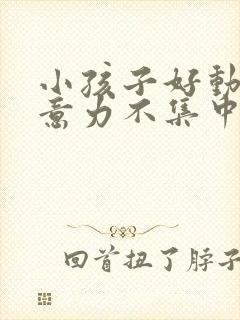 小孩子好動
意力不集中
回首扭了脖子